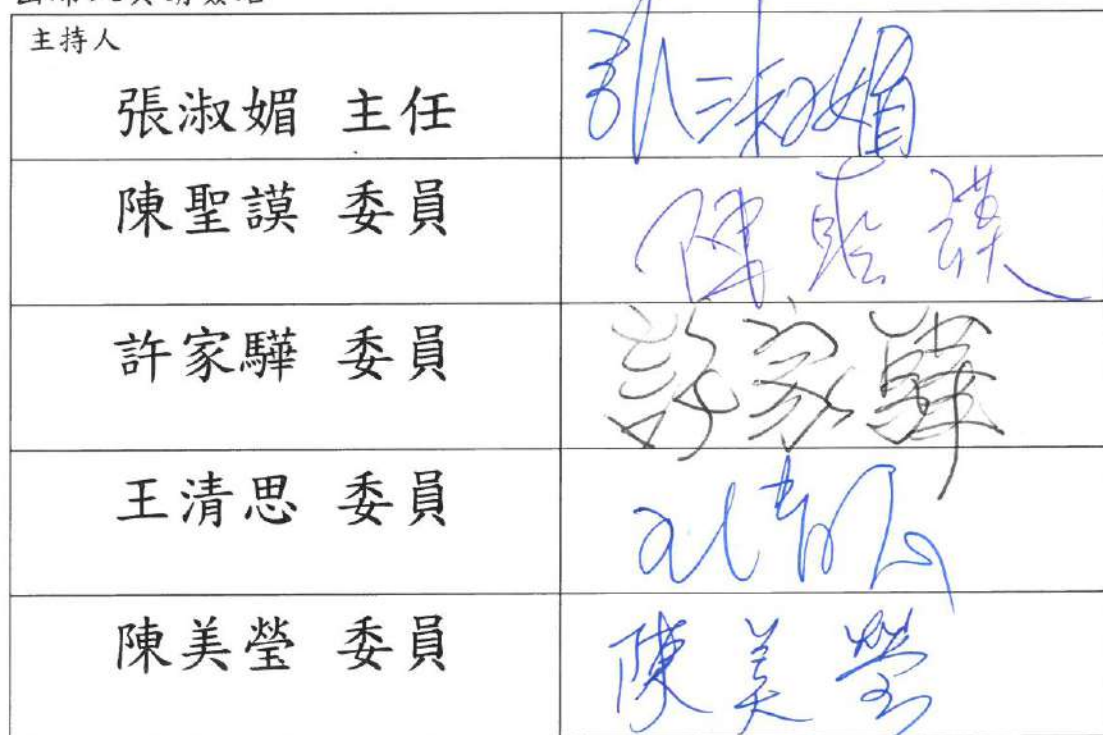 主持人
張淑媚 主任 張淑媚
陳聖謨 委員 陳聖謨
許家驊 委員 許家驊
王清思 委員 王清思
陳美瑩 委員 陳美瑩